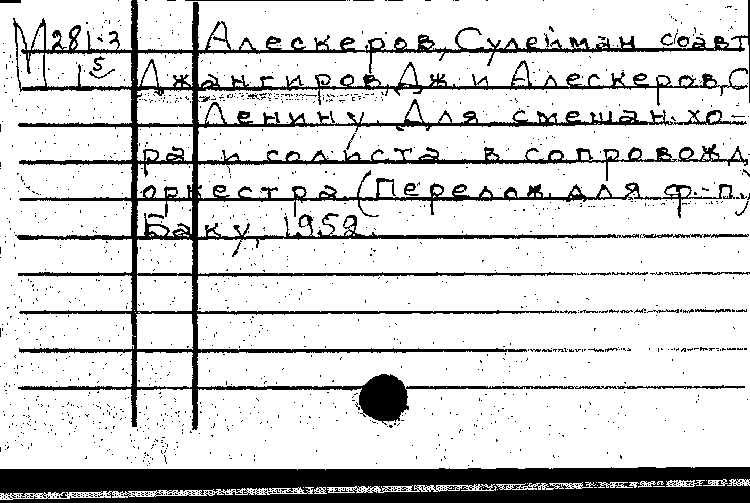 М281-3 Алескеров, Сулейман соавт
15 Джангиров, Дж. и Алескеров, С
Ленину. Для смешан. хо-
ра и солиста в сопровожд
оркестра. (Перелож. для ф.-п.)
Баку, 1952.